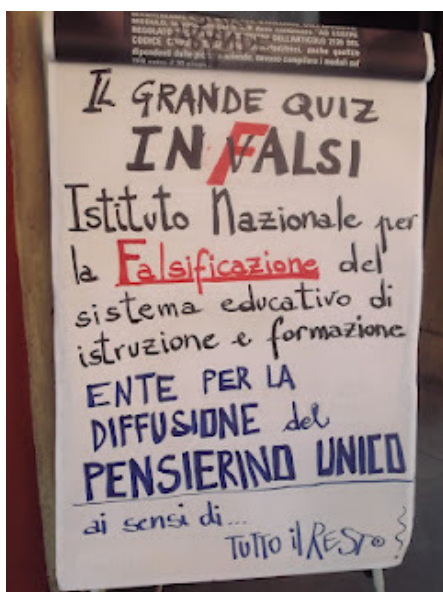 DELL'ARTICOLO 2135 DEL
CODICE
IL GRANDE QUIZ
INFALSI
Istituto Nazionale per
la Falsificazione del
sistema educativo di
istruzione e formazione
ENTE PER LA
DIFFUSIONE del
PENSIERINO UNICO
ai sensi di...
TUTTO il RESTO